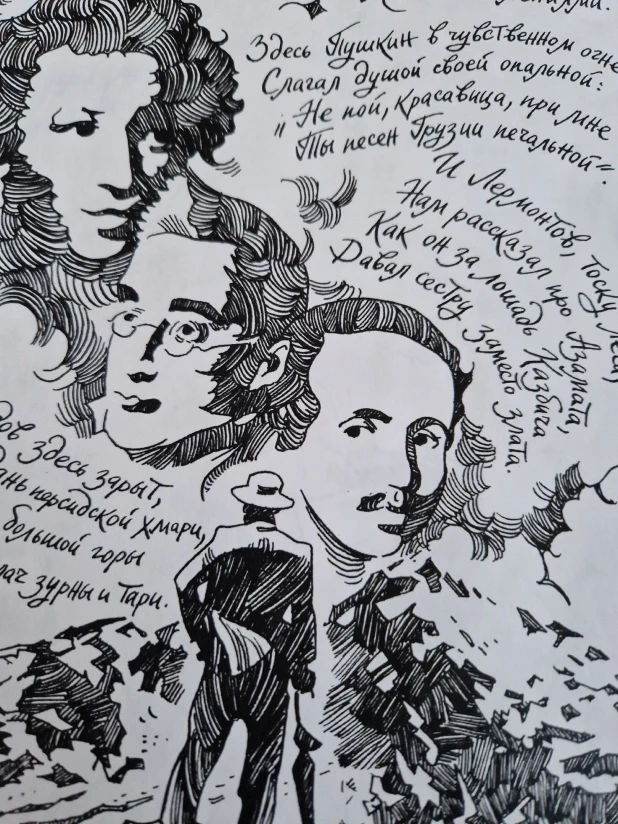 Здесь Пушкин в чувственном огне
Слагал душой своей опальной:
"Не пой, красавица, при мне
Ты песен Грузии печальной".
И Лермонтов, тоску леча,
Нам рассказал про Азамата,
Как он за лошадь Казбича
Давал сестру заместо злата.
дов здесь зарыт,
ань персидской хмари,
большой горы
лач зурны и тари.